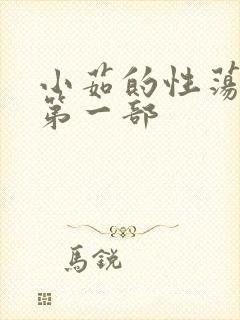 小茹的性蕩
第一部
馬銳